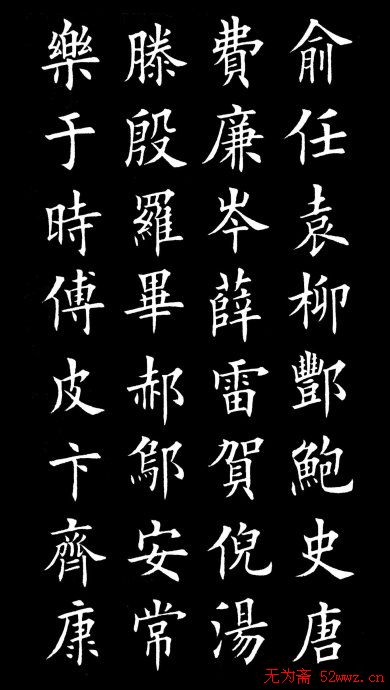 俞任袁柳酆鮑史唐
費廉岑薛雷賀倪湯
滕殷羅畢郝鄔安常
樂于時傅皮卞齊康
无为斋 52wwz.cn